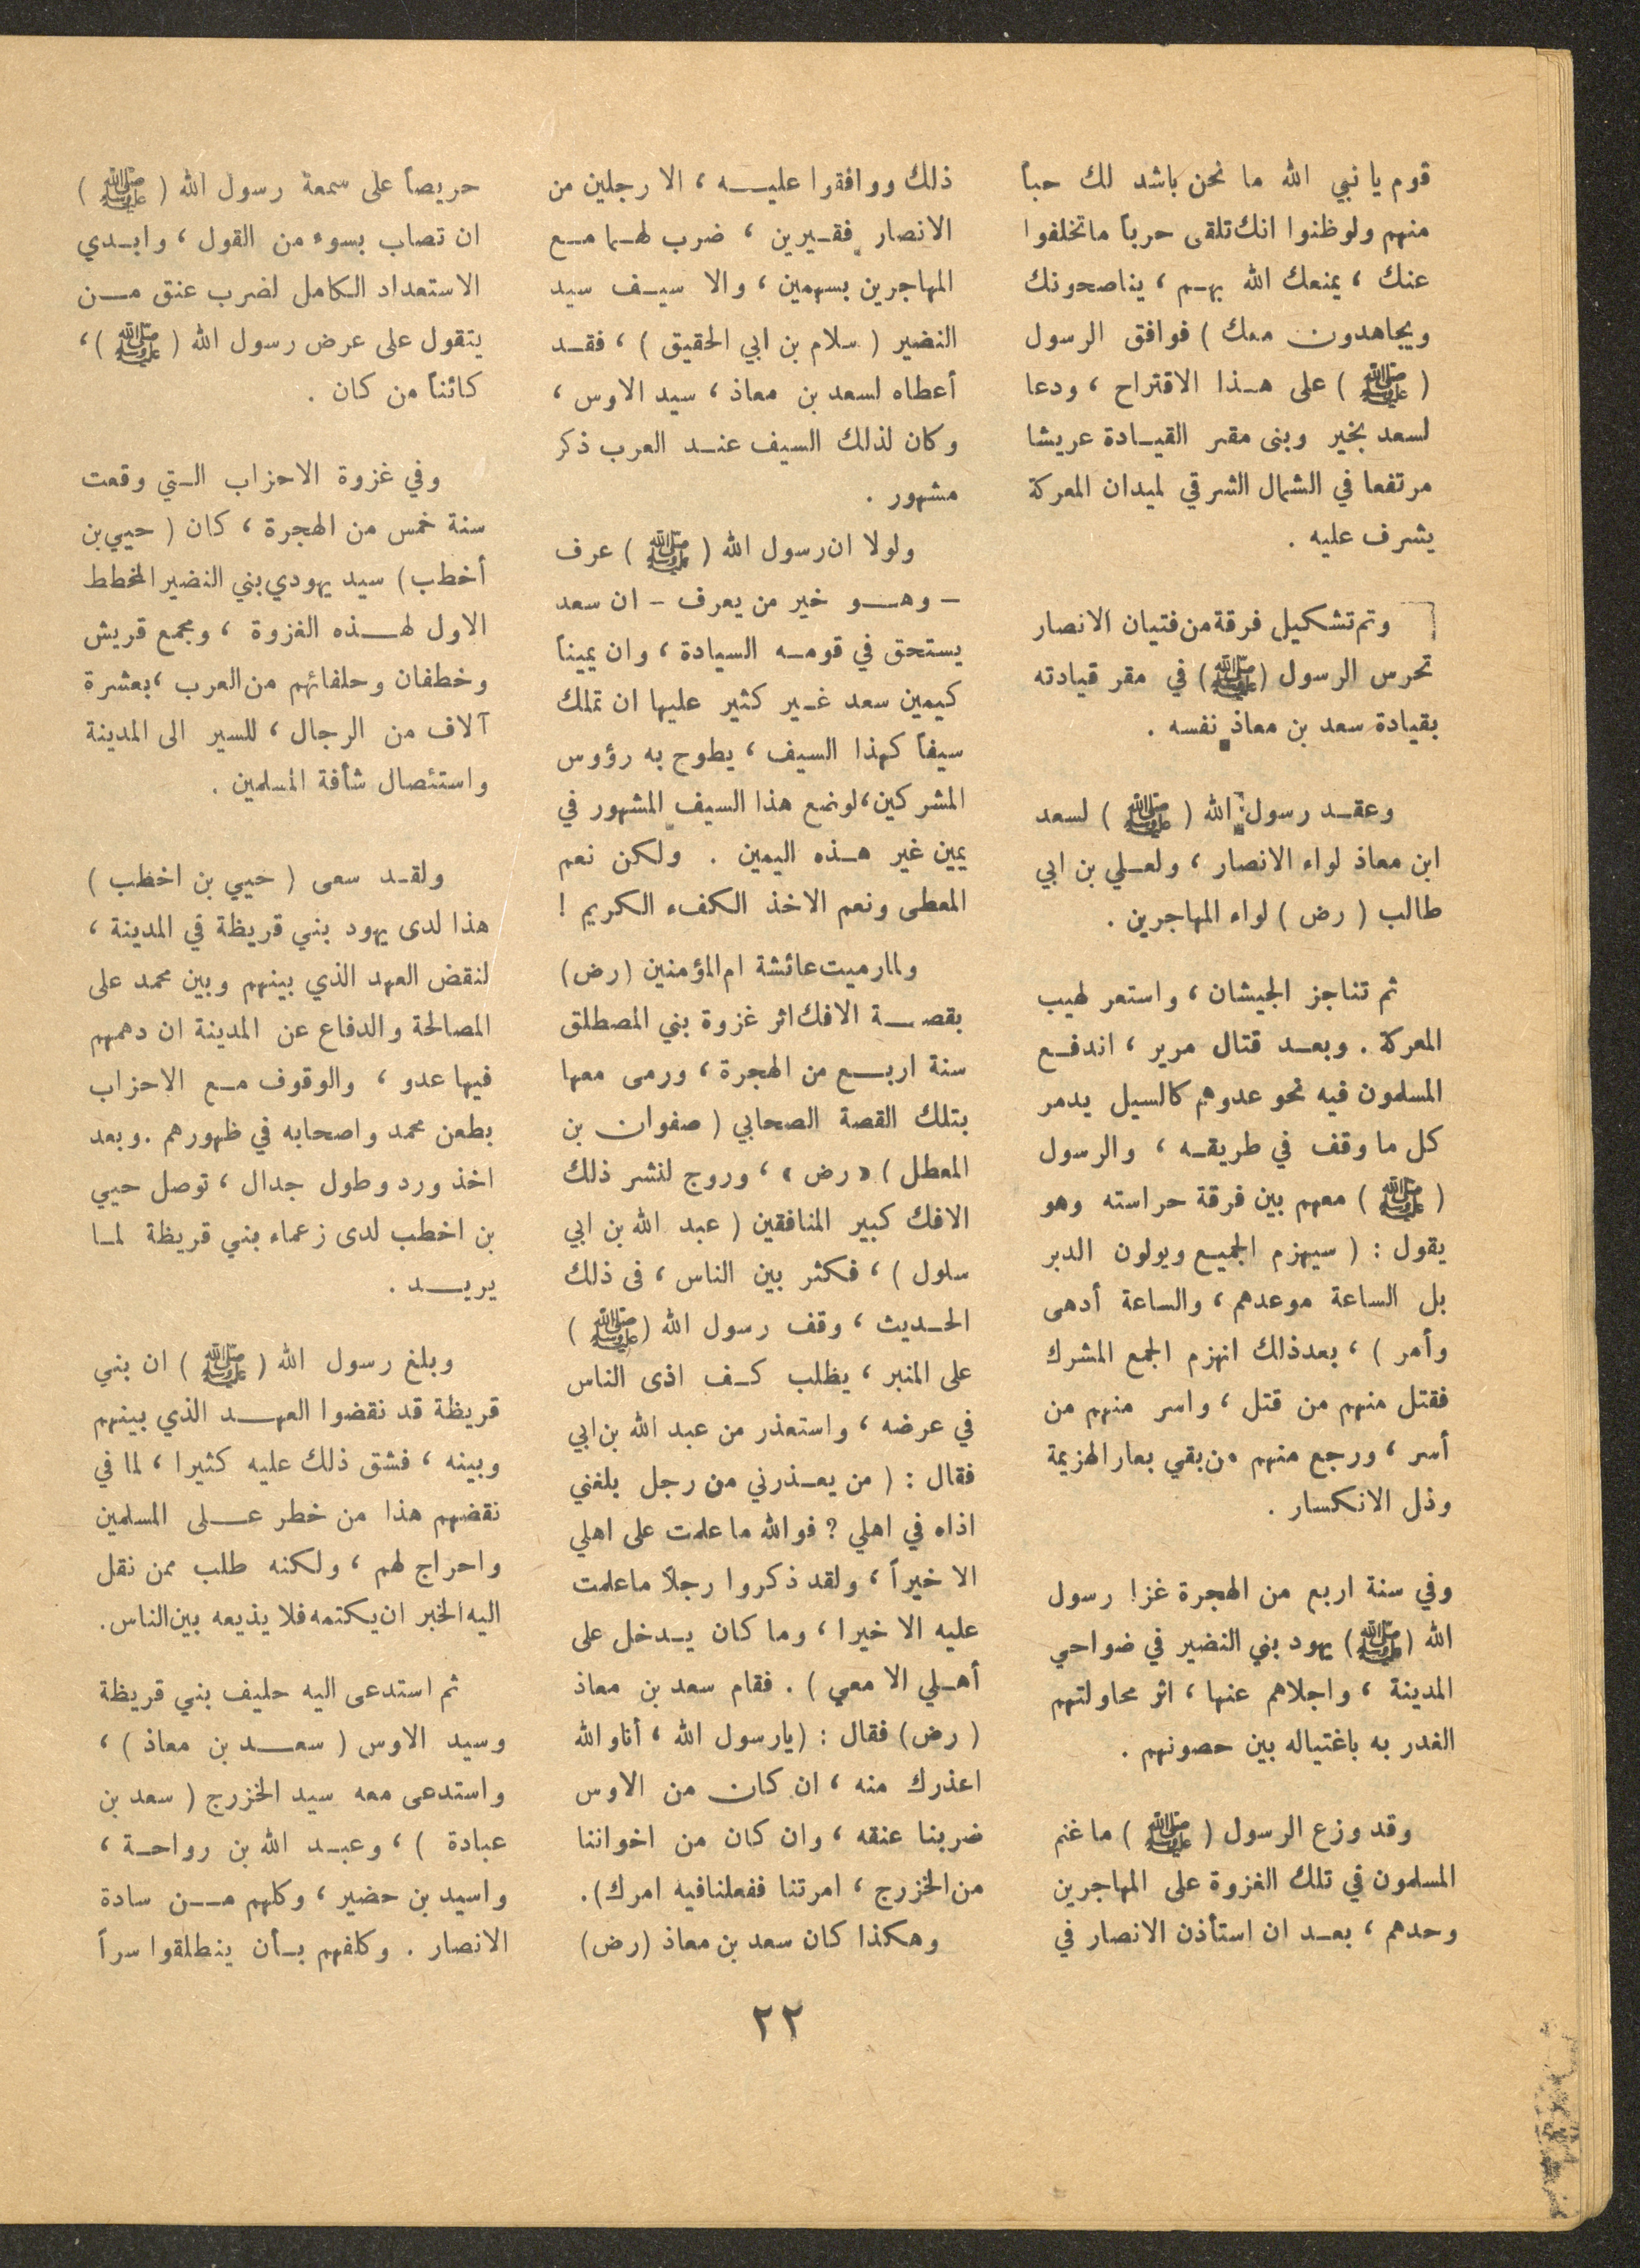 قوم يا نبي الله ما نحن باشد لك حباً
منهم ولوظنوا انك تلقى حرباً ماتخلفوا
عنك ، يمنعك الله بهم ، يناصحونك
ويجاهدون معك ) فوافق الرسول
( ﷺ ) على هذا الاقتراح ، ودعا
لسعد بخير وبنى مقر القيادة عريشا
مرتفعا في الشمال الشرقي لميدان المعركة
يشرف عليه .
وتم تشكيل فرقة من فتيان الانصار
تحرس الرسول (ﷺ) في مقر قيادته
بقيادة سعد بن معاذ نفسه .
وعقد رسول الله ( ﷺ ) لسعد
ابن معاذ لواء الانصار ، ولعلي بن ابي
طالب ( رض ) لواء المهاجرين .
ثم تناجز الجيشان ، واستعر لهيب
المعركة . وبعد قتال مرير ، اندفع
المسلمون فيه نحو عدوهم كالسيل يدمر
كل ما وقف في طريقه ، والرسول
( ﷺ ) معهم بين فرقة حراسته وهو
يقول : ( سيهزم الجميع ويولون الدبر
بل الساعة موعدهم ، والساعة أدهى
وأمر ) ، بعدذلك انهزم الجمع المشرك
فقتل منهم من قتل ، واسر منهم من
أسر ، ورجع منهم من بقي بعار الهزيمة
وذل الانكسار .
وفي سنة اربع من الهجرة غزا رسول
الله (ﷺ) يهود بني النضير في ضواحي
المدينة ، واجلاهم عنها ، اثر محاولتهم
الغدر به باغتياله بين حصونهم .
وقد وزع الرسول ( ﷺ ) ما غنم
المسلمون في تلك الغزوة على المهاجرين
وحدهم ، بعد ان استأذن الانصار في
ذلك ووافقوا عليه ، الا رجلين من
الانصار فقيرين ، ضرب لهما مع
المهاجرين بسهمين ، والا سيف سيد
النضير ( سلام بن ابي الحقيق ) ، فقد
أعطاه لسعد بن معاذ ، سيد الاوس ،
وكان لذلك السيف عند العرب ذكر
مشهور .
ولولا ان رسول الله ( ﷺ ) عرف
– وهو خير من يعرف – ان سعد
يستحق في قومه السيادة ، وان يميناً
كيمين سعد غير كثير عليها ان تملك
سيفاً كهذا السيف ، يطوح به رؤوس
المشركين ، لوضع هذا السيف المشهور في
يمين غير هذه اليمين . ولكن نعم
المعطى ونعم الاخذ الكفء الكريم !
ولما رميت عائشة ام المؤمنين (رض)
بقصة الافك اثر غزوة بني المصطلق
سنة اربع من الهجرة ، ورمى معها
بتلك القصة الصحابي ( صفوان بن
المعطل ) « رض » ، وروج لنشر ذلك
الافك كبير المنافقين ( عبد الله بن ابي
سلول ) ، فكثر بين الناس ، في ذلك
الحديث ، وقف رسول الله ( ﷺ )
على المنبر ، يظلب كف اذى الناس
في عرضه ، واستعذر من عبد الله بن ابي
فقال : ( من يعذرني من رجل بلغني
اذاه في اهلي ? فوالله ما علمت على اهلي
الا خيراً ، ولقد ذكروا رجلاً ماعلمت
عليه الا خيرا ، وما كان يدخل على
أهلي الا معي ) . فقام سعد بن معاذ
( رض) فقال : (يارسول الله ، أنا والله
اعذرك منه ، ان كان من الاوس
ضربنا عنقه ، وان كان من اخواننا
من الخزرج ، امرتنا ففعلنافيه امرك) .
وهكذا كان سعد بن معاذ (رض)
حريصاً على سمعة رسول الله ( ﷺ )
ان تصاب بسوء من القول ، وابدي
الاستعداد الكامل لضرب عنق من
يتقول على عرض رسول الله ( ﷺ ) ،
كائناً من كان .
وفي غزوة الاحزاب التي وقعت
سنة خمس من الهجرة ، كان ( حيي بن
أخطب ) سيد يهودي بني النضير المخطط
الاول لهذه الغزوة ، ومجمع قريش
وخطفان وحلفائهم من العرب ، بعشرة
آلاف من الرجال ، للسير الى المدينة
واستئصال شأفة المسلمين .
ولقد سعى ( حيي بن اخطب )
هذا لدى يهود بني قريظة في المدينة ،
لنقض العهد الذي بينهم وبين محمد على
المصالحة والدفاع عن المدينة ان دهمهم
فيها عدو ، والوقوف مع الاحزاب
بطعن محمد واصحابه في ظهورهم . وبعد
اخذ ورد وطول جدال ، توصل حيي
بن اخطب لدى زعماء بني قريظة لما
يريد .
وبلغ رسول الله ( ﷺ ) ان بني
قريظة قد نقضوا العهد الذي بينهم
وبينه ، فشق ذلك عليه كثيرا ، لما في
نقضهم هذا من خطر على المسلمين
واحراج لهم ، ولكنه طلب ممن نقل
اليه الخبر ان يكتمه فلا يذيعه بين الناس.
ثم استدعى اليه حليف بني قريظة
وسيد الاوس ( سعد بن معاذ ) ،
واستدعى معه سيد الخزرج ( سعد بن
عبادة ) ، وعبد الله بن رواحة ،
واسيد بن حضير ، وكلهم من سادة
الانصار . وكلفهم بأن ينطلقوا سراً
٢٢